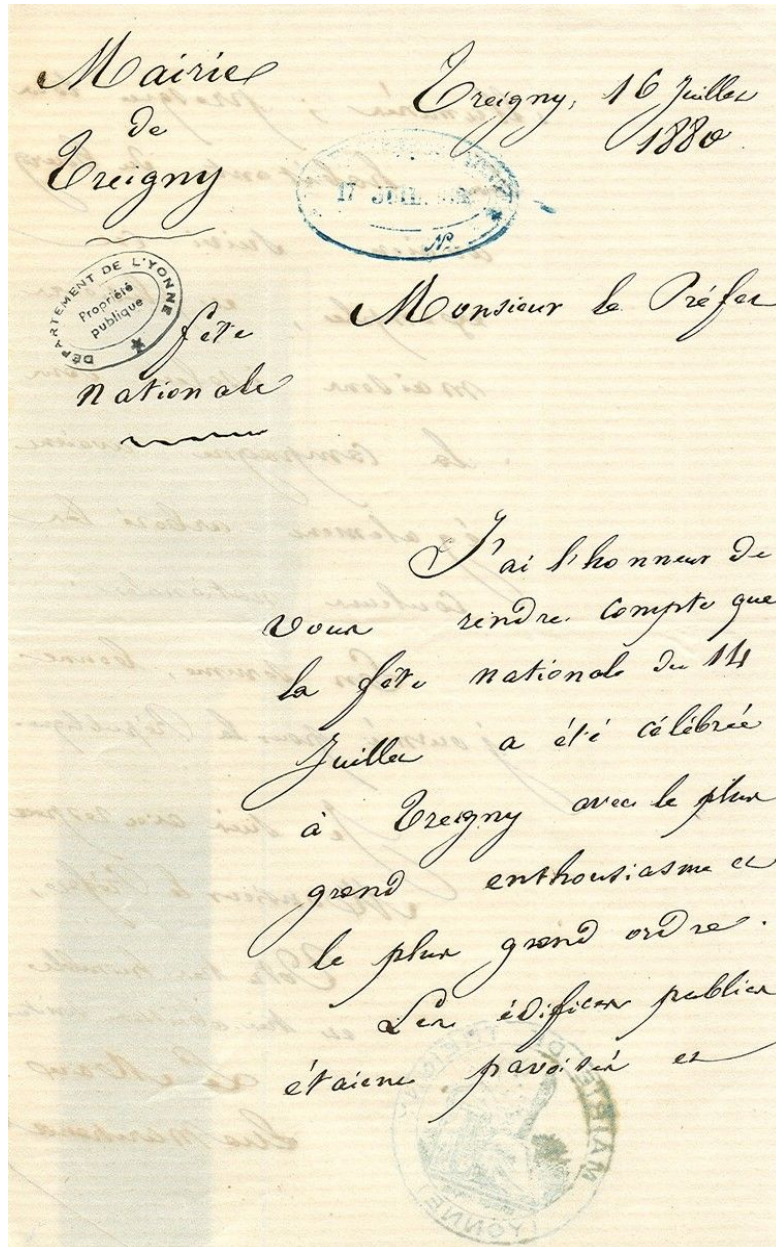 Mairie
de
Treigny
Treigny, 16 Juillet
1880
17 JUIL.
N°
DÉPARTEMENT DE L'YONNE
Propriété
publique
fête
nationale
Monsieur le Préfet
J'ai l'honneur de
vous rendre compte que
la fête nationale du 14
Juillet a été célébrée
à Treigny avec le plus
grand enthousiasme et
le plus grand ordre.
Les édifices publics
étaient pavoisés et
MAIRIE DE TREIGNY
(YONNE)